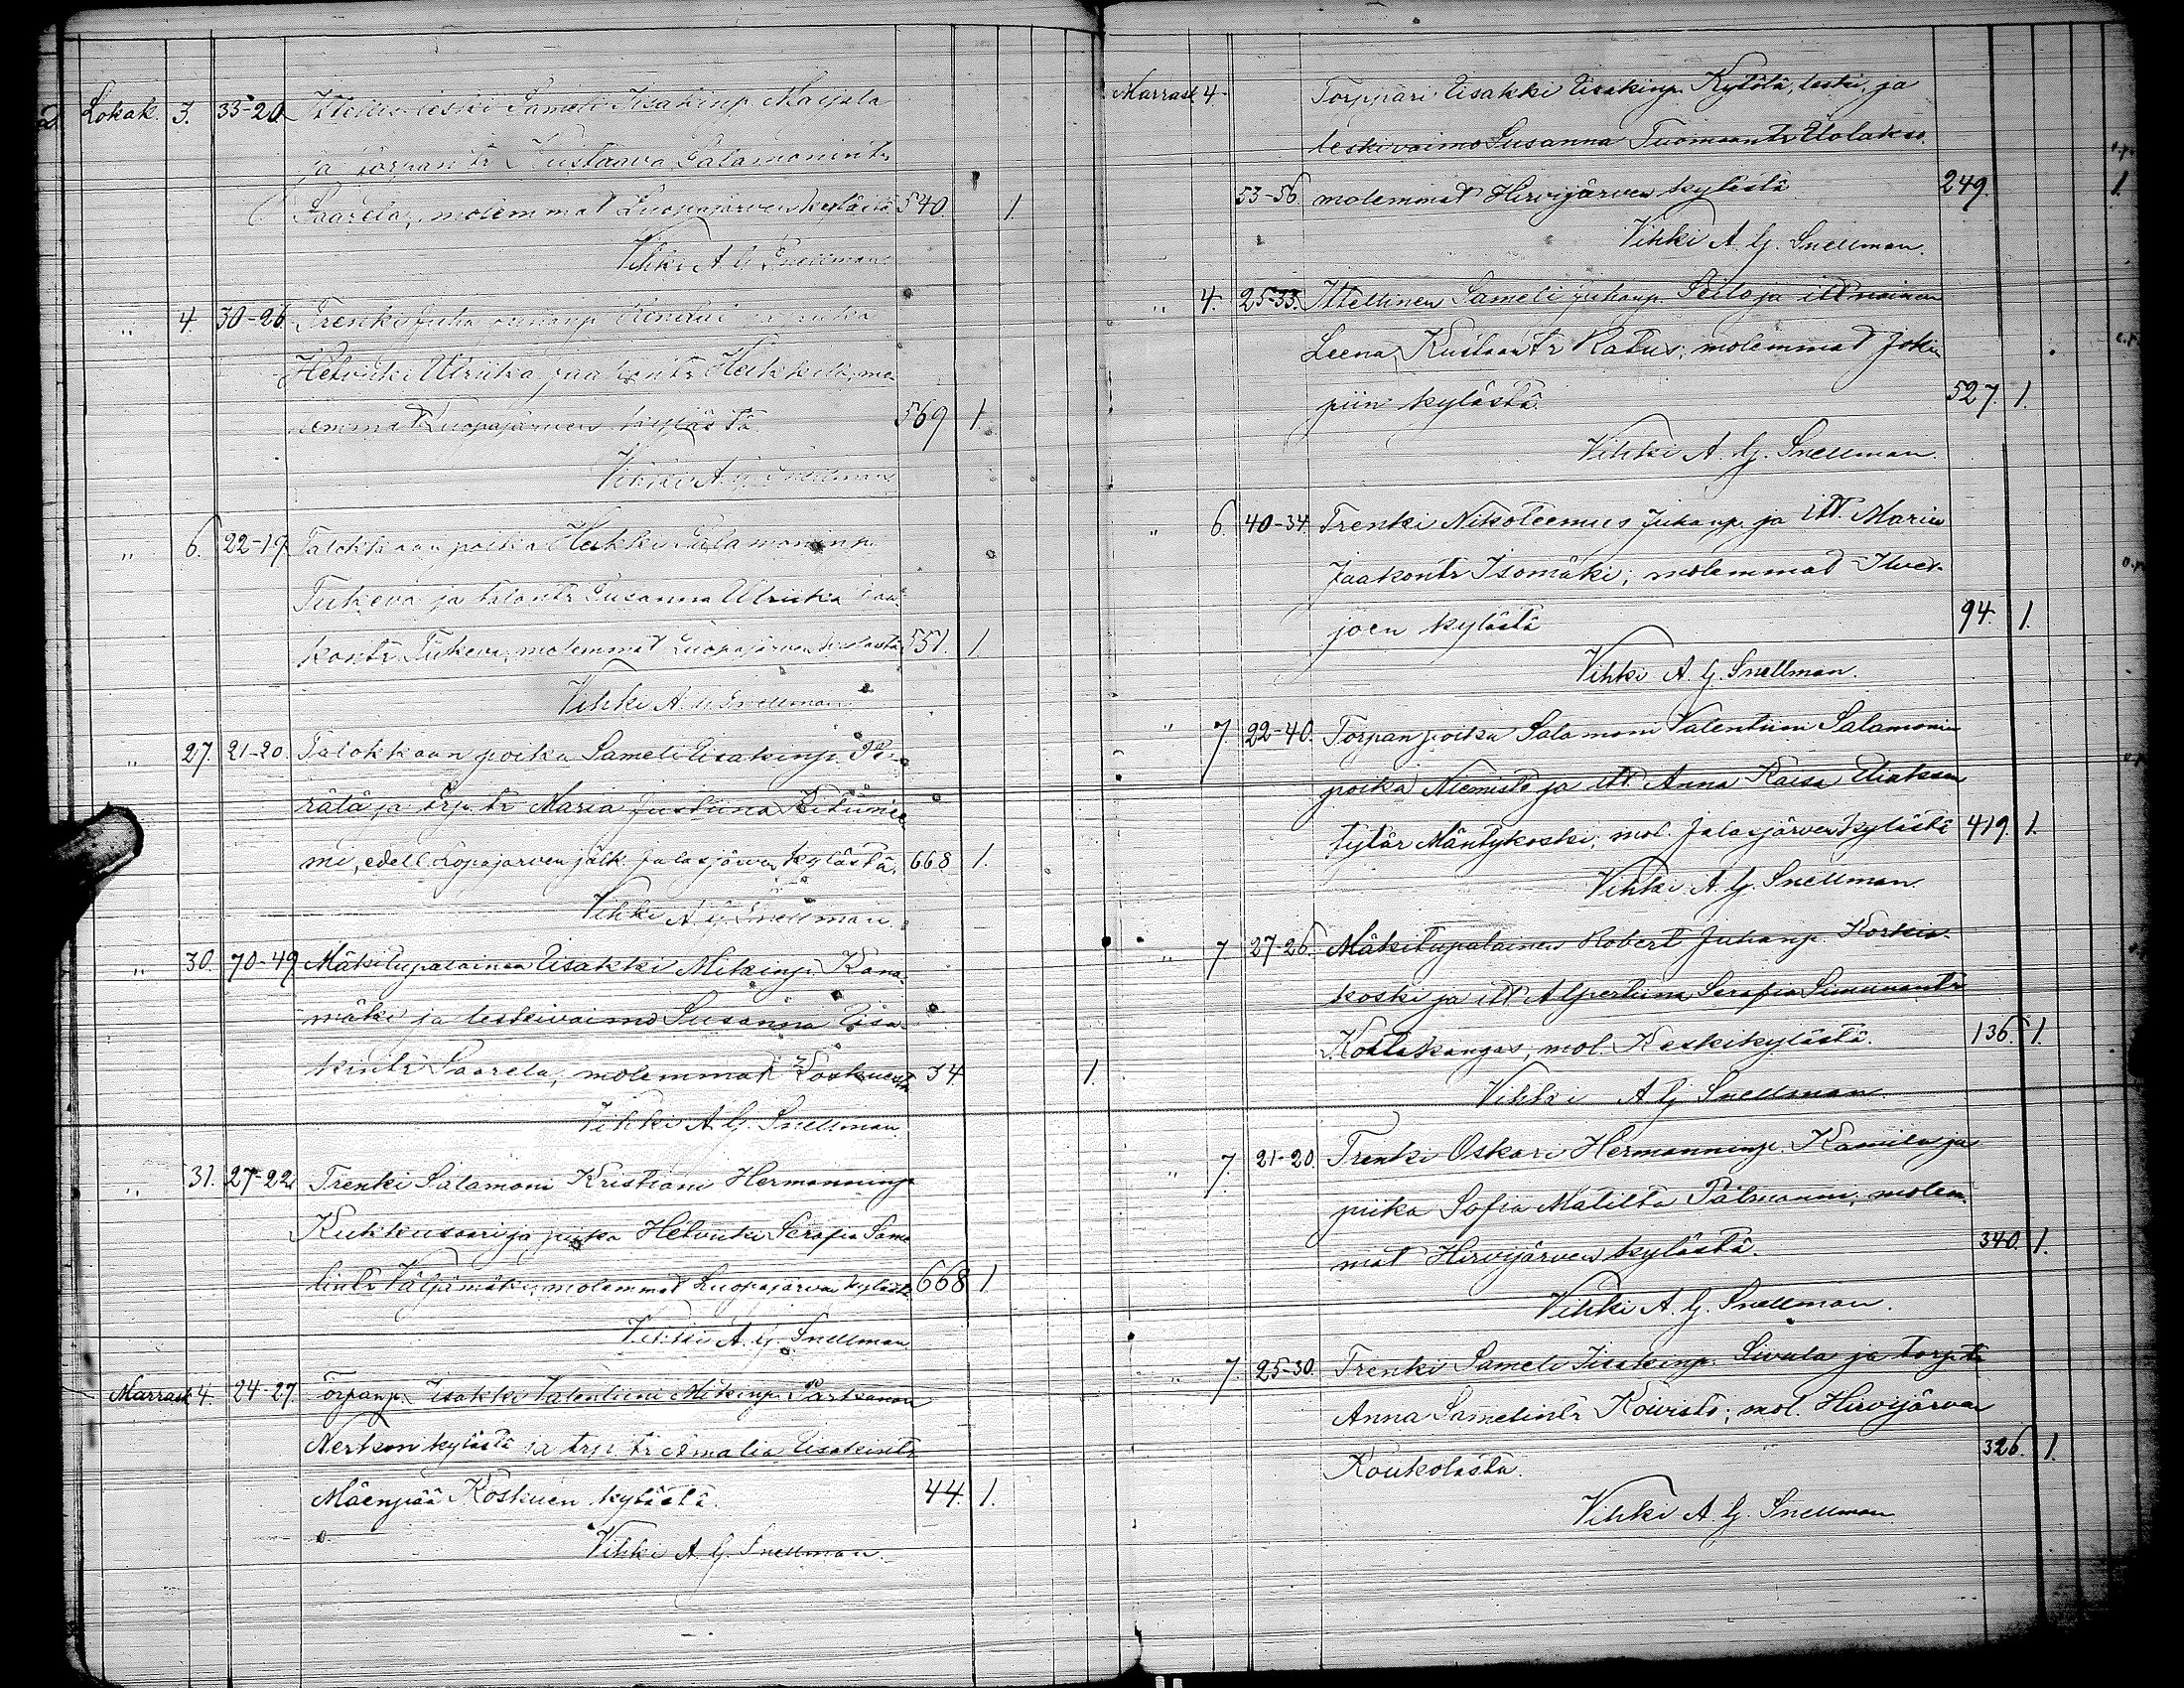 Lokak. 3. 33-20 Ittellis leski Sameli Iisakinp. Marjala
ja torpan tr Kustaava Salamonintr
Saarela, molemmat Luopajärven kylästä 540. 1.
Vihki A. G. Snellman.
" 4. 30-26 Trenki Juha Juhanp. ja piika
Helviiki Ulriika Jaakontr Heikkilä, mo-
lemmat Luopajärven kylästä 569 1.
Vihki A. G. Snellman
" 6. 22-19 Talokkaan poika Heikki Salamoninp.
Tukeva ja talontr Susanna Ulriika Jaa-
kontr Tukeva, molemmat Luopajärven kylästä 551. 1
Vihki A. G. Snellman
" 27. 21-20. Talokkaan poika Sameli Eisakinp. Pe-
rälä ja trp. tr Maria Justiina Kituniemi
mi, edell. Lopajärven jälk. Jalasjärven kylästä. 668 1.
Vihki A. G. Snellman.
" 30. 70-49 Mäkitupalainen Eisakki Mikinp. Kana-
mäki ja leskivaimo Susanna Eisa-
kintr Saarela, molemmat Koskuesta 54. 1.
Vihki A. G. Snellman.
" 31. 27-22 Trenki Salamoni Kristiani Hermanninp
Kukkusaari ja piika Helviiki Serafia Same-
lintr Väljämäki, molemmat Luopajärven kylästä 668 1
Vihki A. G. Snellman
Marrask 4. 24-27. Torpanp. Iisakki Valentiini Mikinp. Parkanon
Nerkoon kylästä ja trp. tr Amalia Eisakintr
Mäenpää Koskuen kylästä. 44. 1.
Vihki A. G. Snellman.
Marrask 4. Torppari Eisakki Eisakinp. Kytölä, leski, ja
leskivaimo Susanna Tuomaantr Uolakso.
53-56. molemmat Hirvijärven kylästä 249. 1.
Vihki A. G. Snellman.
" 4. 25-33. Ittellinen Sameli Juhanp. Seilo ja itt nainen
Leena Kustaantr Ratus, molemmat Joki-
piin kylästä. 527. 1.
Vihki A. G. Snellman.
" 6. 40-34. Trenki Nikoteemus Juhanp. ja itt. Maria
Jaakontr Isomäki; molemmat Ilves-
joen kylästä 94. 1.
Vihki A. G. Snellman.
" 7. 22-40. Torpan poika Salamoni Valentiini Salamonin
poika Niemistö ja itt. Anna Kaisa Eliaksen
tytär Mäntykoski; mol. Jalasjärven kylästä 419. 1.
Vihki A. G. Snellman.
" 7. 27-26. Mäkitupalainen Robert Juhanp. Korkia-
koski ja itt Alpertiina Serafia Simunantr
Koitakangas, mol. Keskikylästä. 136. 1.
Vihki A G Snellman.
" 7. 21-20. Trenki Oskari Hermanninp. Kamila ja
piika Sofia Matilta Pälmanni, molem-
mat Hirvijärven kylästä. 340. 1.
Vihki A. G. Snellman.
" 7. 25-30. Trenki Sameli Iisakinp. Sivula ja torp.tr
Anna Samelintr Koivisto; mol. Hirvijärven
Koukolasta. 326. 1.
Vihki A. G. Snellman